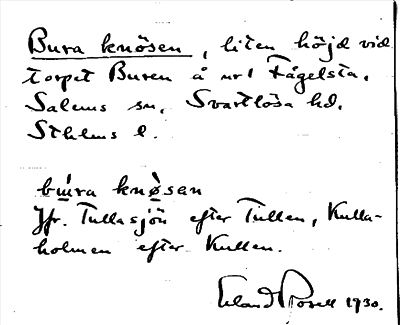 Bura knösen, liten höjd vid
torpet Buren å nr 1 Fågelsta,
Salems sn, Svartlösa hd,
Sthlms l.
bu̲ra knø̲sen
Jfr. Tullasjön efter Tullen, Kulla-
holmen efter Kullen.
Erland Rosell 1930.